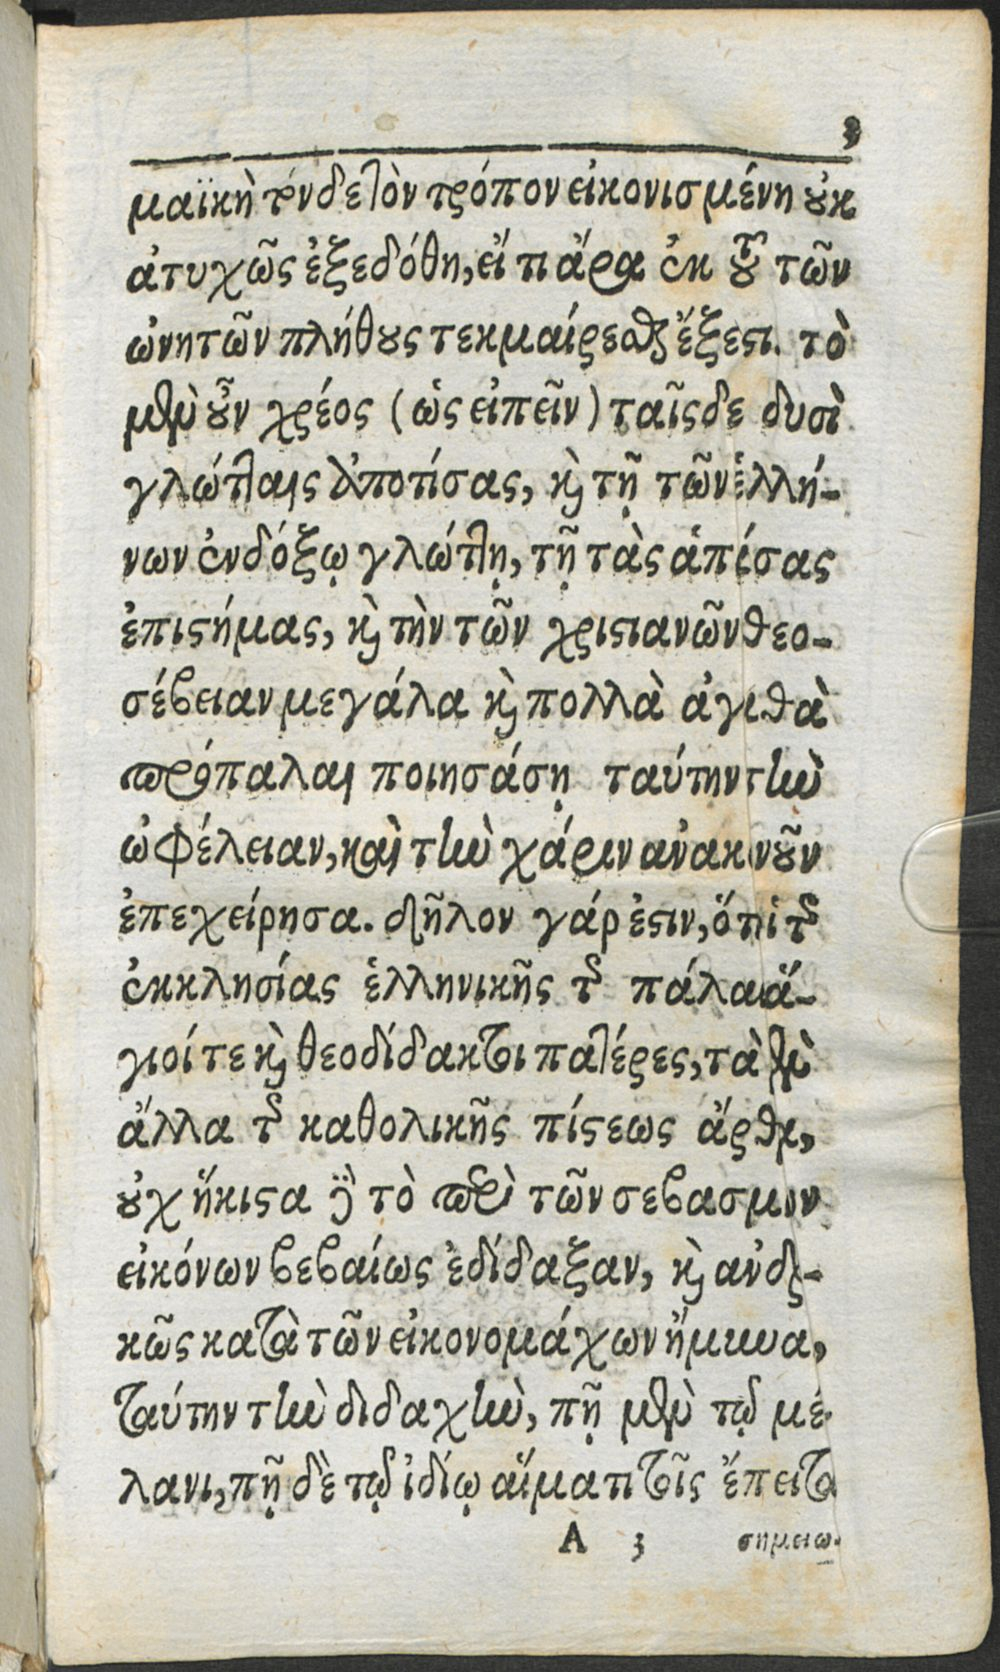 3
μαϊκὴ τόνδε τὸν τρόπον εἰκονισμένη οὐκ
ἀτυχῶς ἐξεδόθη, εἴ τι ἄρα ἐκ τοῦ τῶν
ὠνητῶν πλήθους τεκμαίρεσθαι ἔξεστι. τὸ
μὲν οὖν χρέος (ὡς εἰπεῖν) ταῖσδε δυσὶ
γλώτταις ἀποτίσας, καὶ τῇ τῶν ἑλλή-
νων ἐνδόξῳ γλώττῃ, τῇ τὰς ἁπάσας
ἐπιστήμας, καὶ τὴν τῶν χριστιανῶν θεο-
σέβειαν μεγάλα καὶ πολλὰ ἀγαθὰ
πρόπαλαι ποιησάσῃ ταύτην τὴν
ὠφέλειαν, καὶ τὴν χάριν ἀνακινοῦν
ἐπεχείρησα. δῆλον γάρ ἐστιν, ὅτι οἱ τῆς
ἐκκλησίας ἑλληνικῆς τῆς πάλαι ἅ-
γιοί τε καὶ θεοδίδακτοι πατέρες, τὰ μὲν
ἄλλα τῆς καθολικῆς πίστεως ἄρθρα,
οὐχ ἥκιστα δὲ τὸ περὶ τῶν σεβασμίων
εἰκόνων βεβαίως ἐδίδαξαν, καὶ ἀνδρι-
κῶς κατὰ τῶν εἰκονομάχων ἤμυναν,
ταύτην τὴν διδαχὴν, πῇ μὲν τῷ μέ-
λανι, πῇ δὲ τῷ ἰδίῳ αἵματι τοῖς ἔπειτα
A 3 σημειω-